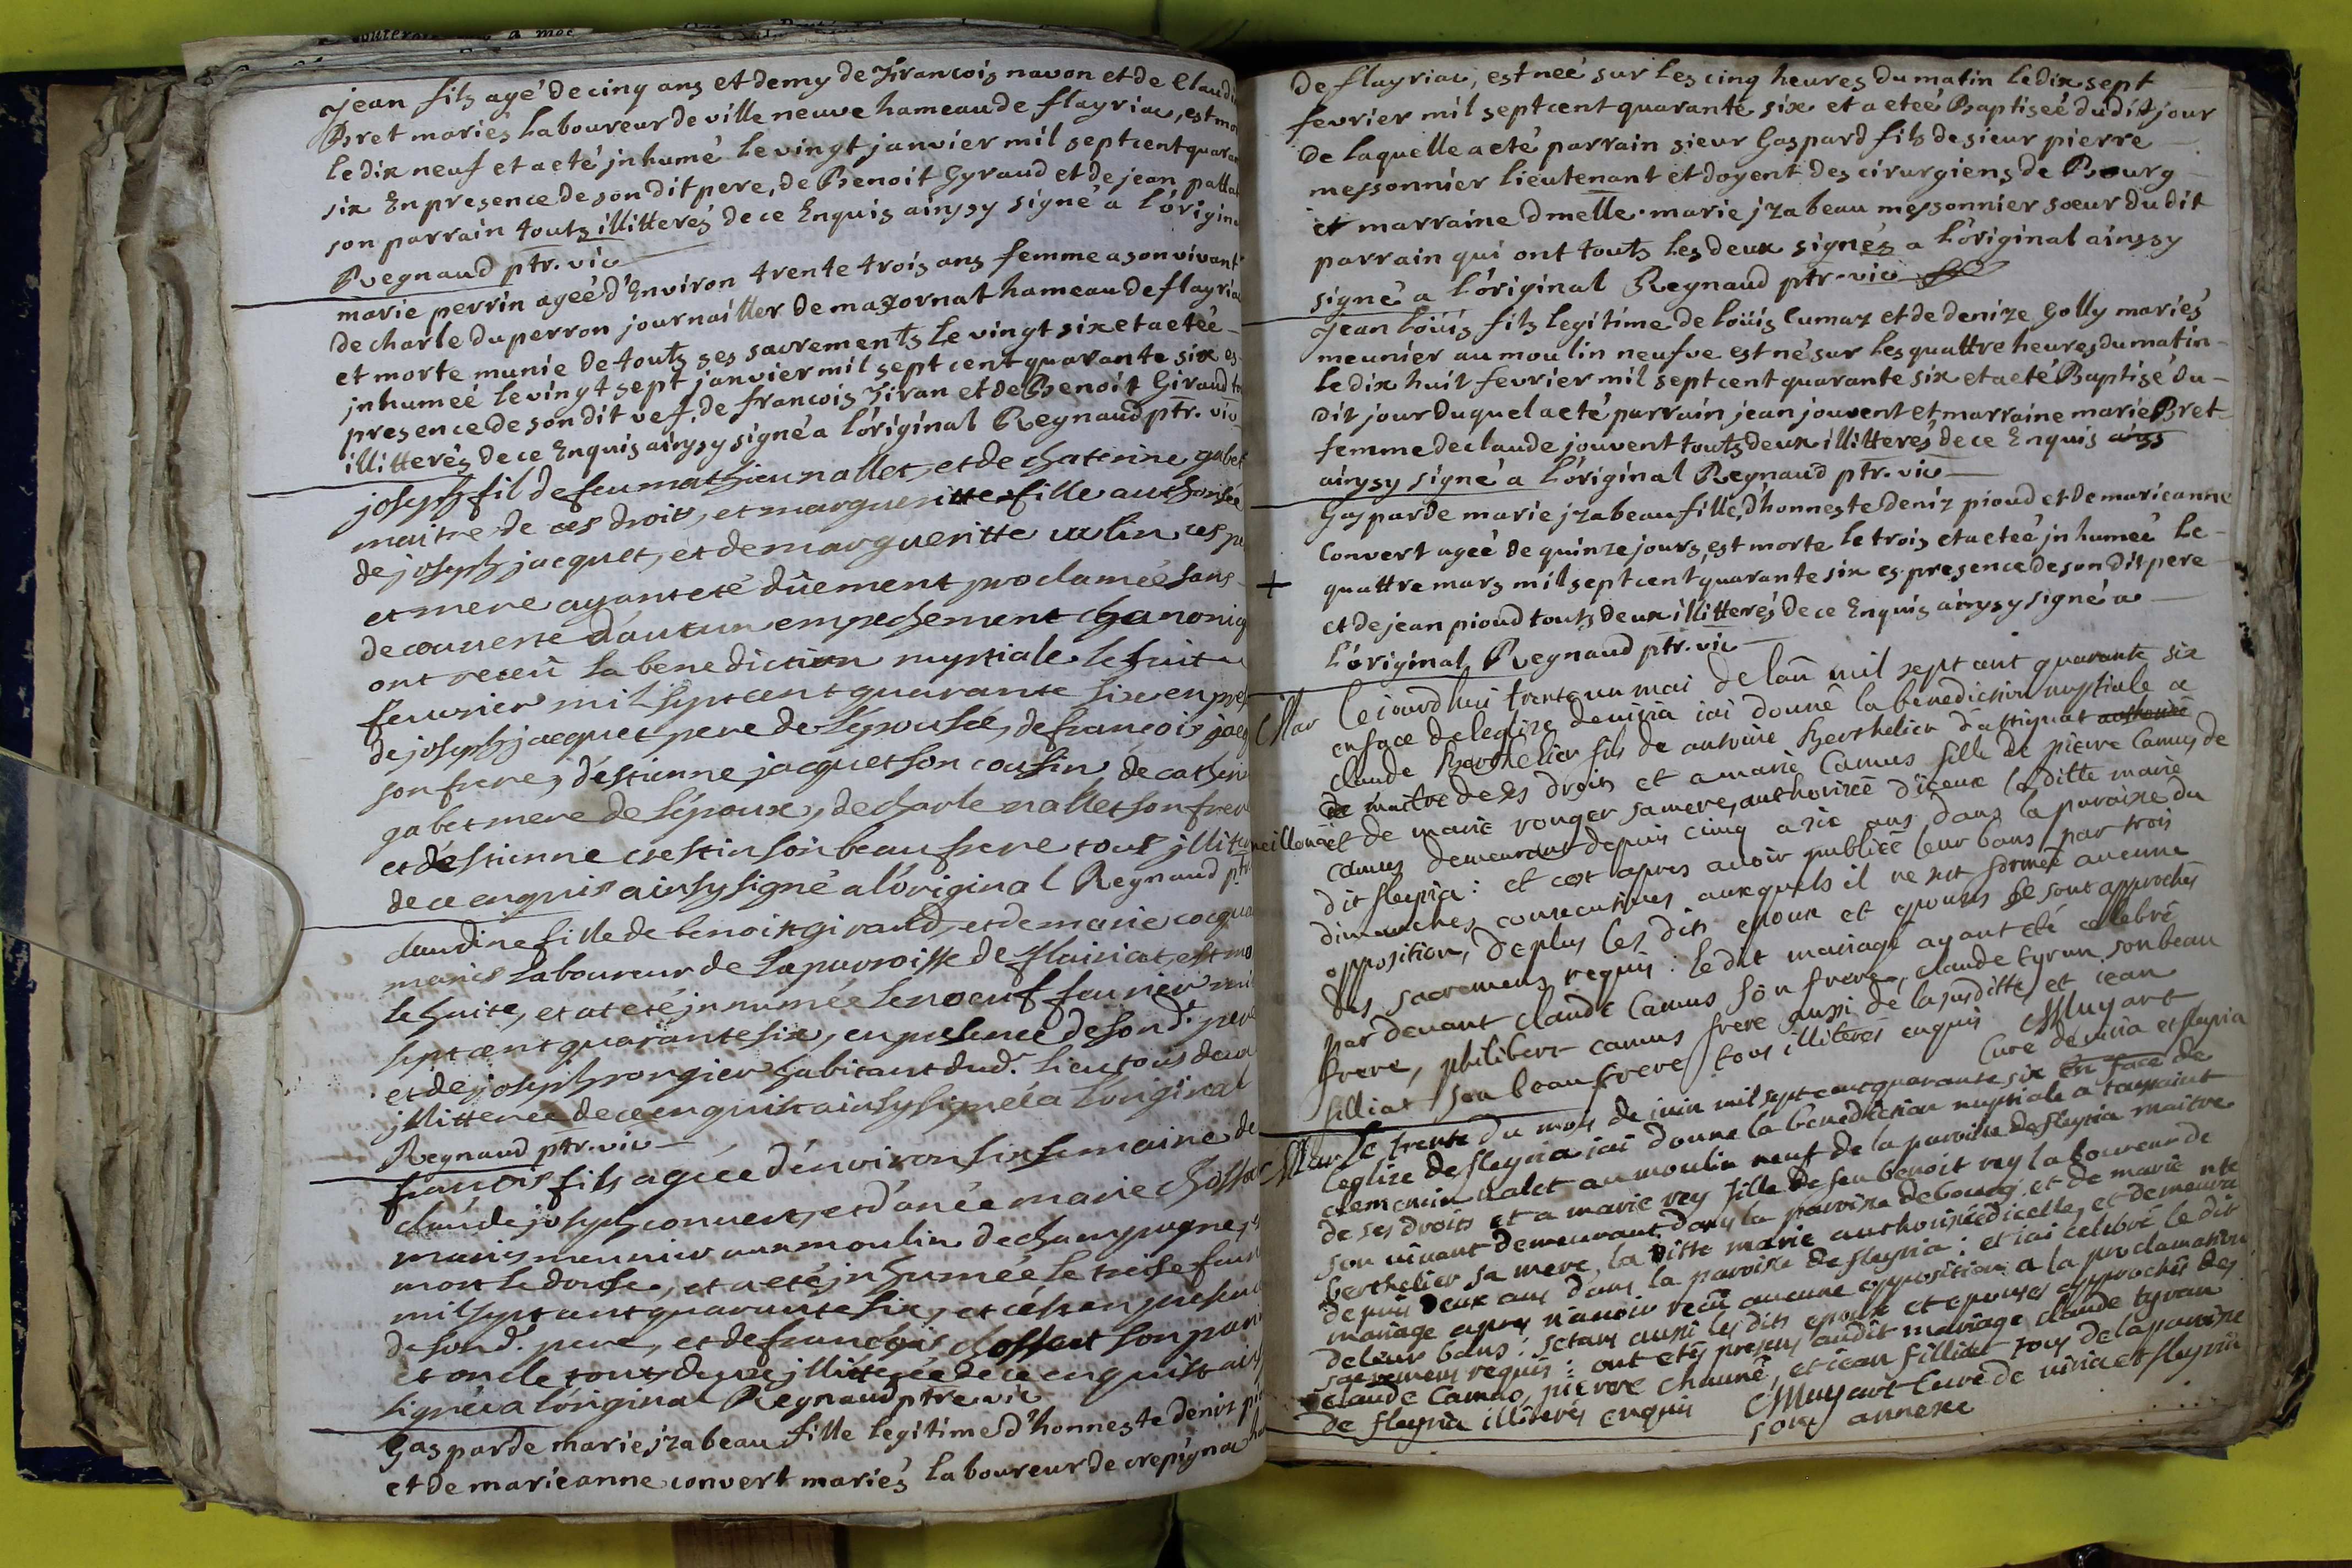 jean fils agé de cinq ans et demy de francois navon et de Claudi
Bret mariés laboureur de ville neuve hameau de flayriac, est mo
le dix neuf et a eté jnhumé le vingt janvier mil sept cent quaran
six En presence de son dit pere, de Benoit Gyraud et de jean palla
son parrain touts illitterés de ce Enquis ainysy signé a l'origin
Regnaud ptr. vic
marie perrin ageé d'Environ trente trois ans femme a son vivant
de charle du perron journailler de majornat hameau de flayria
et morte munie de touts ses sacrements le vingt six et a etée
jnhumeé le vingt sept janvier mil sept cent quarante six es
presence de son dit vef. de francois Tiran et de Benoit Giraud to
illitterés de ce Enquis ainysy signé a l'original Regnaud ptr. vic
joseph fil de feu mathieu nallet, et de chaterine gabet
maitre de ces droits, et margueritte fille authorisée
de joseph jacquet, et de margueritte ces pe
et mere ayant eté dûement proclamée sans
decouverte d'autun empechement chanoniq
ont reçeü la benediction nuptiale le huit
feuvrier mil sept cent quarante six en pres
de joseph jacquet pere de l'epousée, de francois jacq
son frere, d'estienne jacquet son cousin, de catheri
gabet mere de l'epoux, de charle nallet son frere
et d'estienne crestin son beau frere tous jlliter
de ce enquis ainsy signé a l'original Regnaud ptr.
claudine fille de benoit giraud, et de marie cocqua
mariés laboureur de la parroisse de flairiat, est mo
le huite, et at eté jnhumée le noeuf feuvrier mil
sept cent quarante six, en presence de son d. pere
et de joseph rongier habitant dud. lieu tois deux
jllitterée de ce enquis ainsy signé a l'original
Regnaud ptr. vic
francois fils agée d'environ six semaine de
claude joseph convert, et d'anée marie chossat
mariés meunier aux moulin de champagne, es
mort le douse, et a eté jnhumée le treise feuv
mil sept cent quarante six, et c'est en presence
de son d. pere, et de francois chossat son parr
et oncle tous deux jllitterée de ce enquist ains
signé a l'original Regnaud ptre vic
Gasparde marie jzabeau fille legitime d'honneste deniz pi
et de marieanne convert mariés laboureur de crepignat ha
de flayriac, est neé sur les cinq heures du matin le dix sept
fevrier mil sept cent quarante six et a eteé Baptiseé du dit jour
de laquelle a eté parrain sieur Gaspard fils de sieur pierre
messonnier lieutenant et doyent des cirurgiens de Bourg
et marraine dmelle. marie jzabeau messonnier soeur du dit
parrain qui ont touts les deux signés a l'original ainysy
signé a l'original Regnaud ptr. vic
jean loüis fils legitime de loüis Cumaz et de denize Golly mariés
meunier au moulin neufve est né sur les quattre heures du matin
le dix huit fevrier mil sept cent quarante six et a eté Baptisé du
dit jour duquel a eté parrain jean jouvent et marraine marie Bret
femme de claude jouvent touts deux illitterés de ce Enquis ainss
ainysy signé a l'original Regnaud ptr. vic
Gasparde marie jzabeau fille d'honneste deniz pioud et de marieanne
Convert ageé de quinze jours, est morte le trois et a eteé jnhumeé le
+ quattre mars mil sept cent quarante six es presence de son dit pere
et de jean pioud touts deux illitterés de ce Enquis ainysy signé a
l'original Regnaud ptr. vic
Mar Cejourdhui trente un mai de lan mil sept cent quarante six
en face de leglize de viria iai donné la benediction nuptiale a
claude Berthelier fils de antoine Berthelier d'attignat authorisé
de maitre de ses droits et a marie Camus fille de pierre Camus de
et de marie ronger sa mere, authorizée d'iceux la ditte marie
camus demeurant depuis cinq a six ans dans la paroise du
dit fleyria: et cest apres avoir publiée leur bans par trois
dimanches consecutives auxquels il ne sest formée aucune
opposition, de plus les dits epoux et epouses se sont approchés
des sacremens requis: le dit mariage ayant eté celebré
par devant claude Camus son frere, claude tyran son beau
frere, philibert camus frere aussi de la susditte, et iean
filliat son beau frere tous illiterés enquis Muyart
Curé de viria et fleyria
Mar Le trente du mois de iuin mil sept cent quarante six en face de
leglize de fleyria iai donné la benediction nuptiale a toussaint
clemencin valet au moulin neuf de la paroisse de fleyria maitre
de ses droits et a marie rey fille de feu benoit rey laboureur de
son vivant demeurant dans la paroise de bourg et de marie
berthelier sa mere, la ditte marie authorisée d'icelle, et demeura
depuis deux ans dans la paroise de fleyria: et iai celebré le dit
mariage apres n'avoir reçû aucune opposition a la proclamation
de leurs bans: sétans aussi les dits epoux et epouses approchés des
sacremens requis: ont etés presens audit mariage claude tyran
claude Camus, pierre chauné, et iean filliat tous de la paroisse
de fleyria illiterés enquis Muyart Curé de viria et fleyria
son annexe